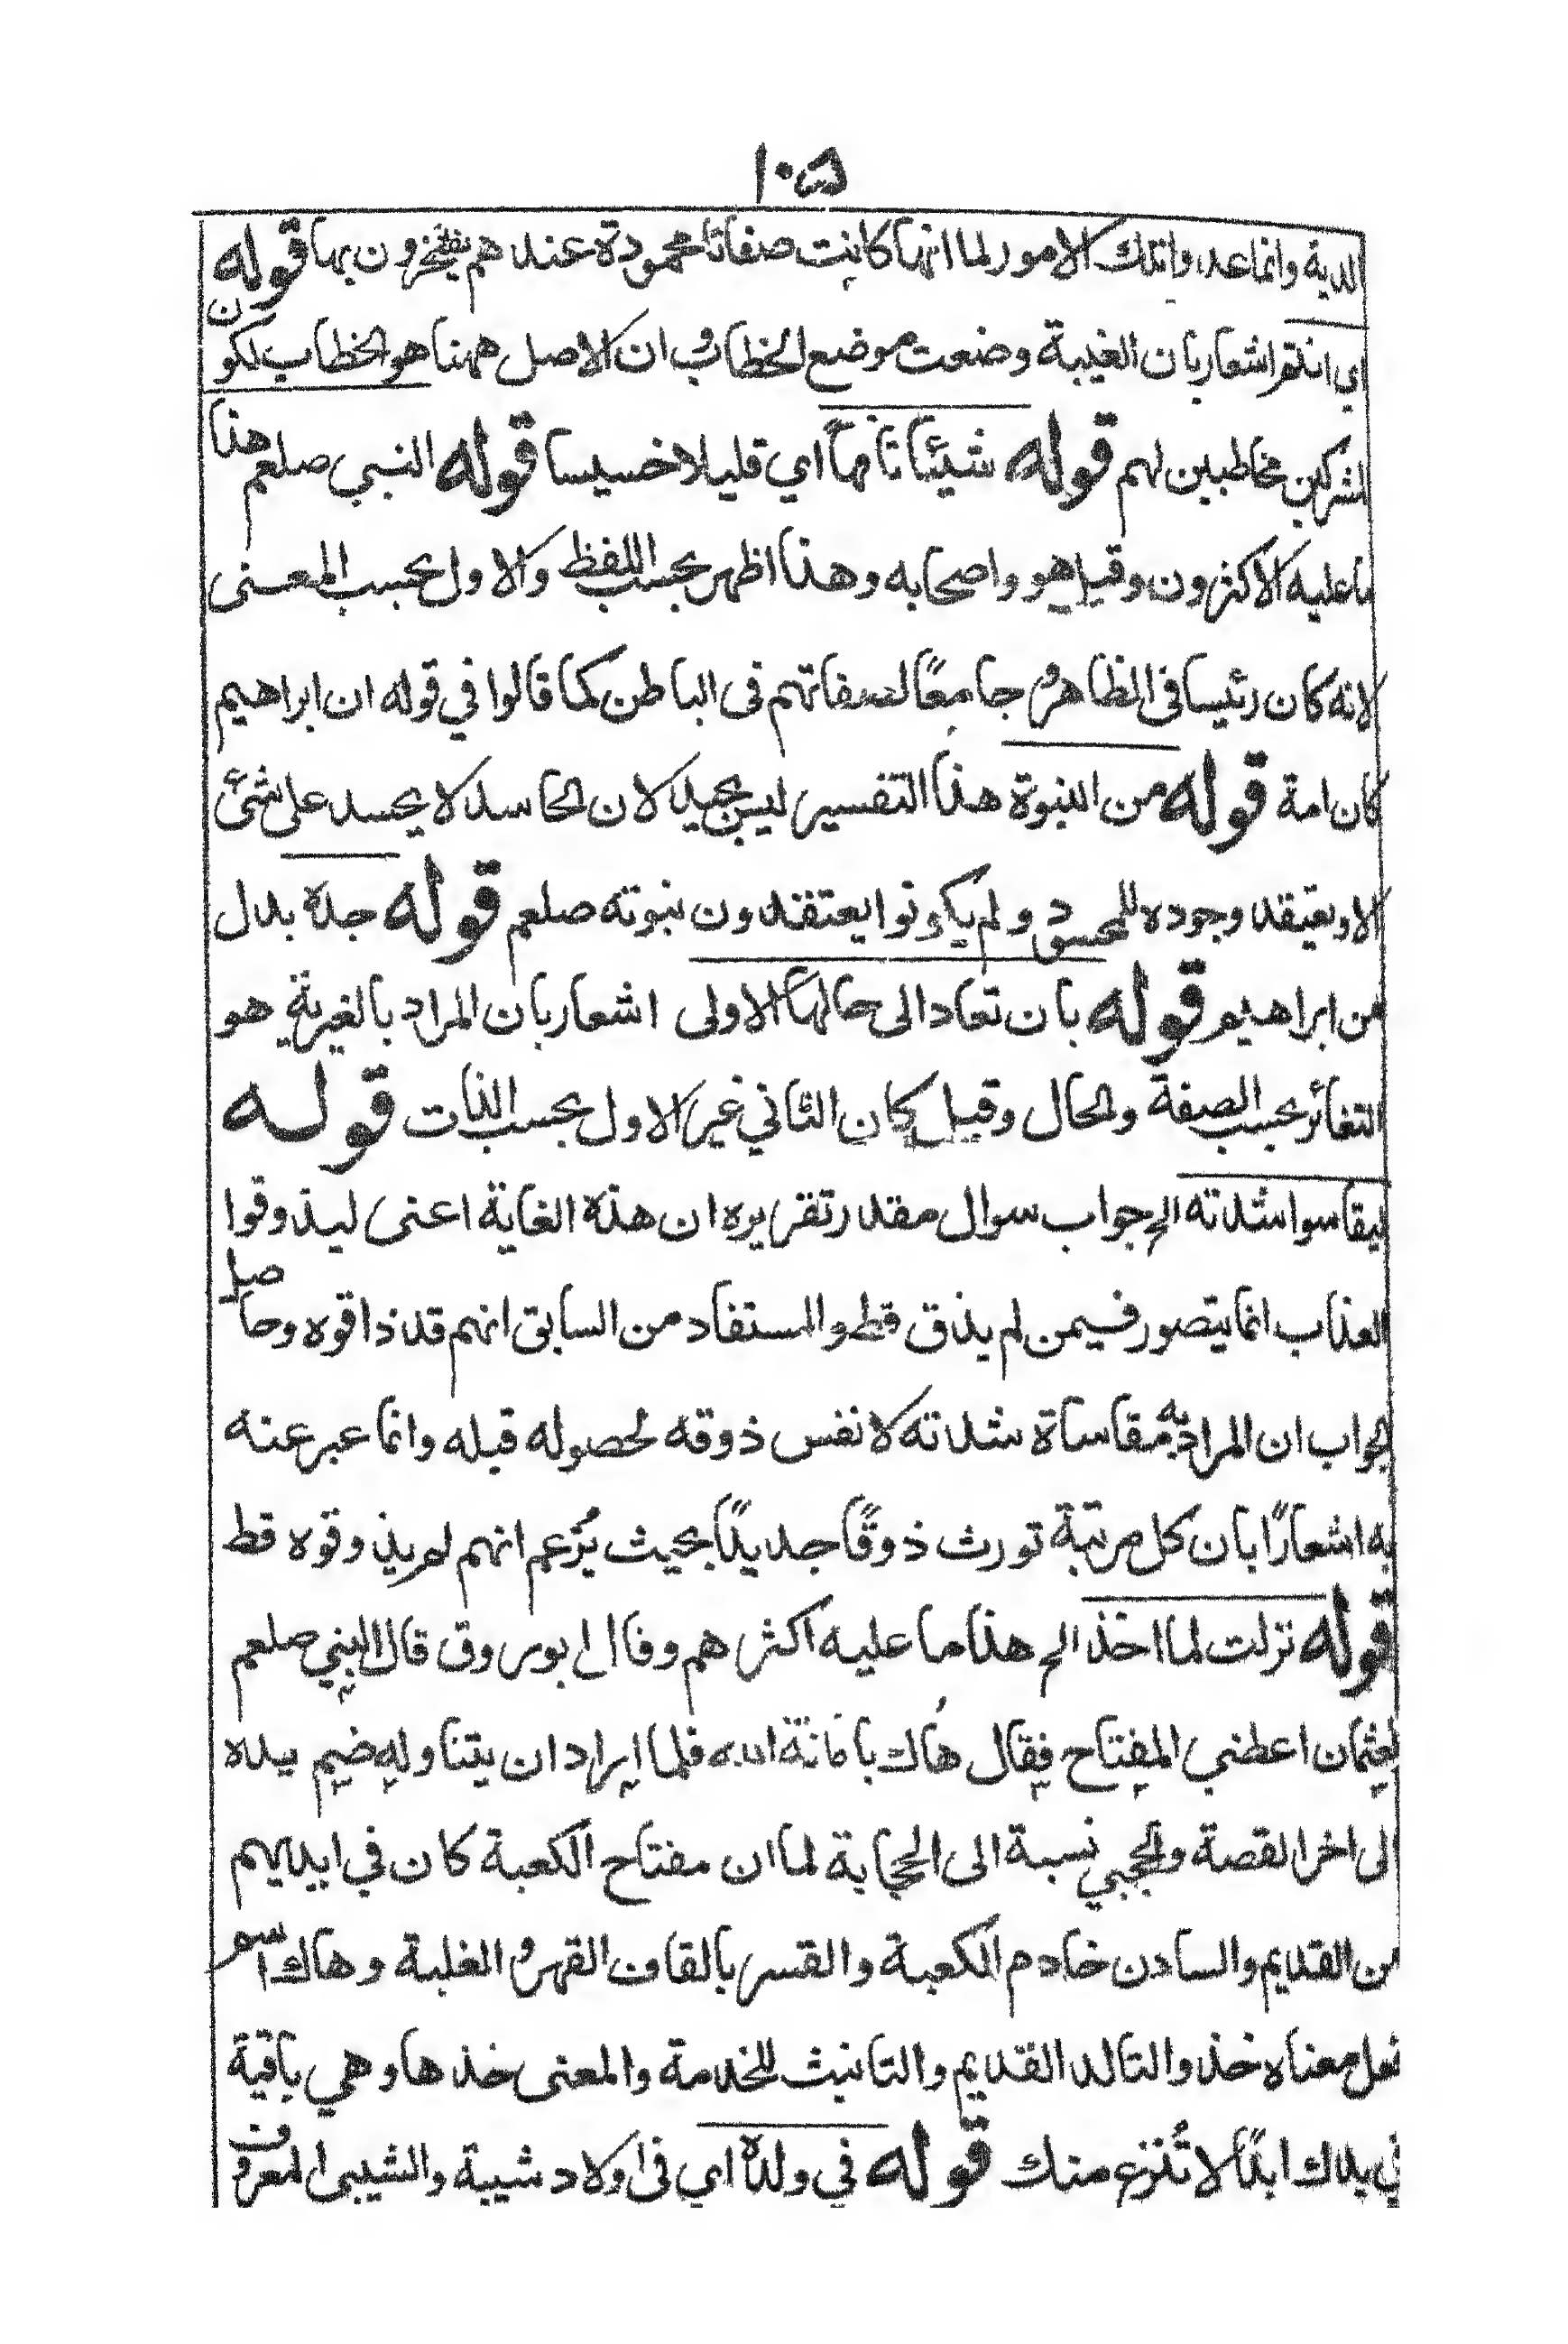 ١٠۵
الدية وانما عدوا تلك الامور لما انها كانت صفاتا محمودة عندهم يفتخرون بها قوله
اي انتم اشعار بان الغيبة وضعت موضع الخطاب و ان الاصل ههنا هو الخطاب لكون
المشركين مخاطبين لهم قوله شيئا تافهاً اي قليلا خسيسا قوله النبي صلعم هذا
ما عليه الاكثرون وقيل هو واصحابه وهذا اظهر بحسب اللفظ والاول بحسب المعنى
لانه كان رئيسا في الظاهر و جامعًا لصفاتهم في الباطن كما قالوا في قوله ان ابراهيم
كان امة قوله من النبوة هذا التفسير ليس بجيد لان الحاسد لا يحسد على شئ
الا ويعتقد وجوده للمحسود ولم يكونوا يعتقدون نبوته صلعم قوله جدة بدل
من ابراهيم قوله بان تعاد الى حالها الاولى اشعار بان المراد بالغيرية هو
التغائر بحسب الصفة والحال وقيل كان الثاني غير الاول بحسب الذات قوله
ليقاسوا شدته الخ جواب سوال مقدر تقريره ان هذه الغاية اعنى ليذوقوا
العذاب انما يتصور فيمن لم يذق قط والمستفاد من السابق انهم قد ذاقوه وحاصل
الجواب ان المراد به مقاساة شدته لا نفس ذوقه لحصوله قبله وانما عبر عنه
به اشعارًا بان كل مرتبة تورث ذوقًا جديدًا بحيث يُزعم انهم لم يذوقوه قط
قوله نزلت لما اخذ الخ هذا ما عليه اكثرهم وقال ابو روق قال النبي صلعم
لعثمان اعطني المفتاح فقال هاك بامانة الله فلما اراد ان يتناوله ضم يده
الى اخر القصة والحجبي نسبة الى الحجابة لما ان مفتاح الكعبة كان في ايديهم
من القديم والسادن خادم الكعبة والقسر بالقاف القهر و الغلبة وهاك اسم
فعل معناه خذ والتالد القديم والتانيث للخدمة والمعنى خذها وهي باقية
في يدك ابدًا لا تُنزع منك قوله في ولده اي في اولاد شيبة والشيبى المعروف